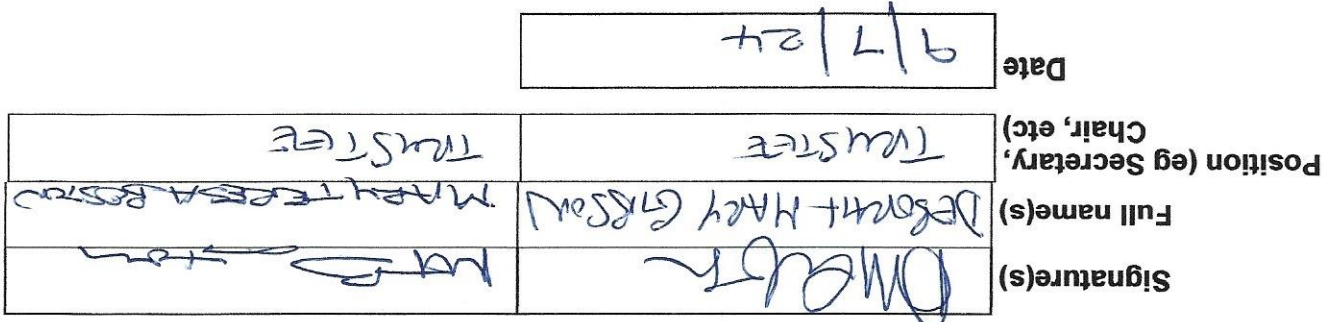 Signature(s)
Full name(s) DEBORAH MARY GIBSON MARY TERESA BESTON
Position (eg Secretary,
Chair, etc) TRUSTEE TRUSTEE
Date 9/7/24